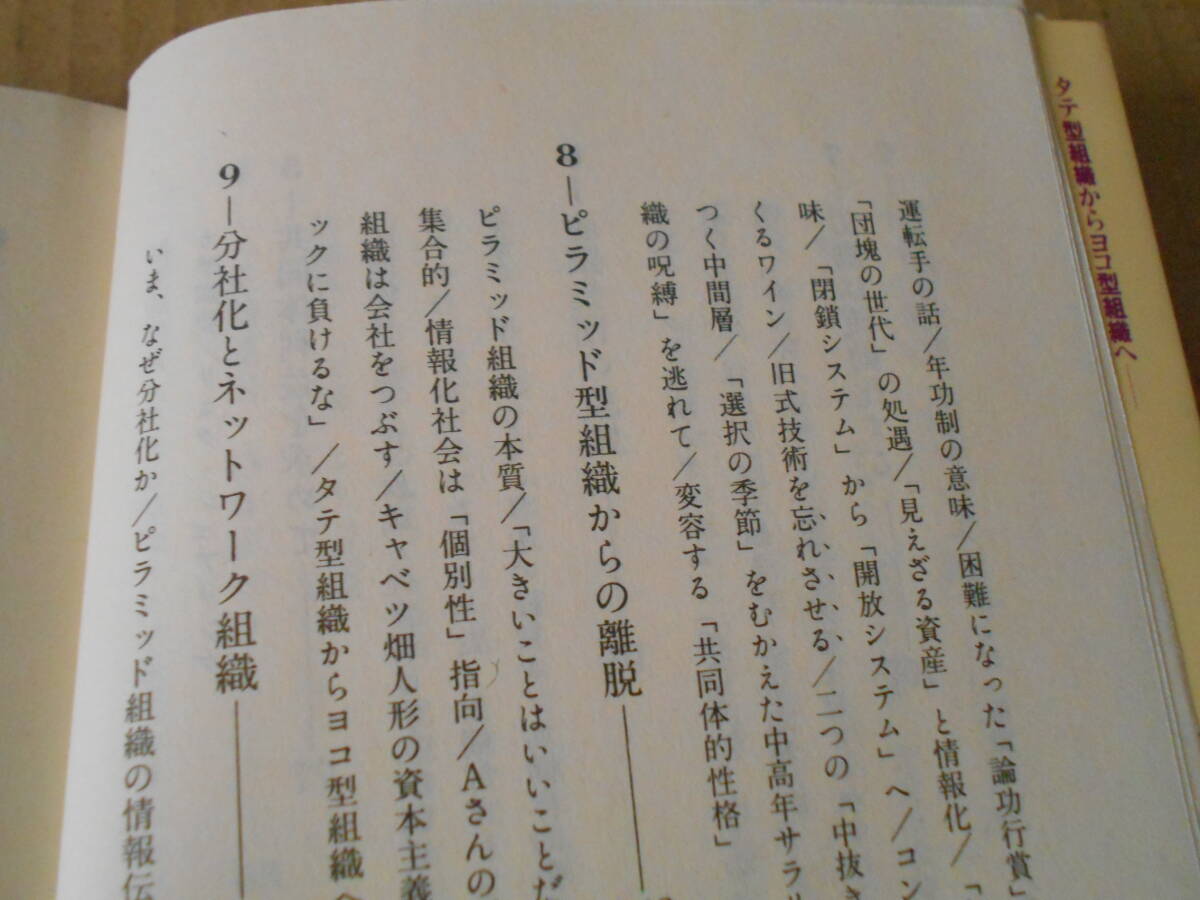 タテ型組織からヨコ型組織へ――
運転手の話/年功制の意味/困難になった「論功行賞」
「団塊の世代」の処遇/「見えざる資産」と情報化/「
味/「閉鎖システム」から「開放システム」へ/コン
くるワイン/旧式技術を忘れさせる/二つの「中抜き
つく中間層/「選択の季節」をむかえた中高年サラリ
織の呪縛」を逃れて/変容する「共同体的性格」
8―ピラミッド型組織からの離脱――
ピラミッド組織の本質/「大きいことはいいことだ
集合的/情報化社会は「個別性」指向/Aさんの
組織は会社をつぶす/キャベツ畑人形の資本主義
ックに負けるな」/タテ型組織からヨコ型組織へ
9―分社化とネットワーク組織――
いま、なぜ分社化か/ピラミッド組織の情報伝